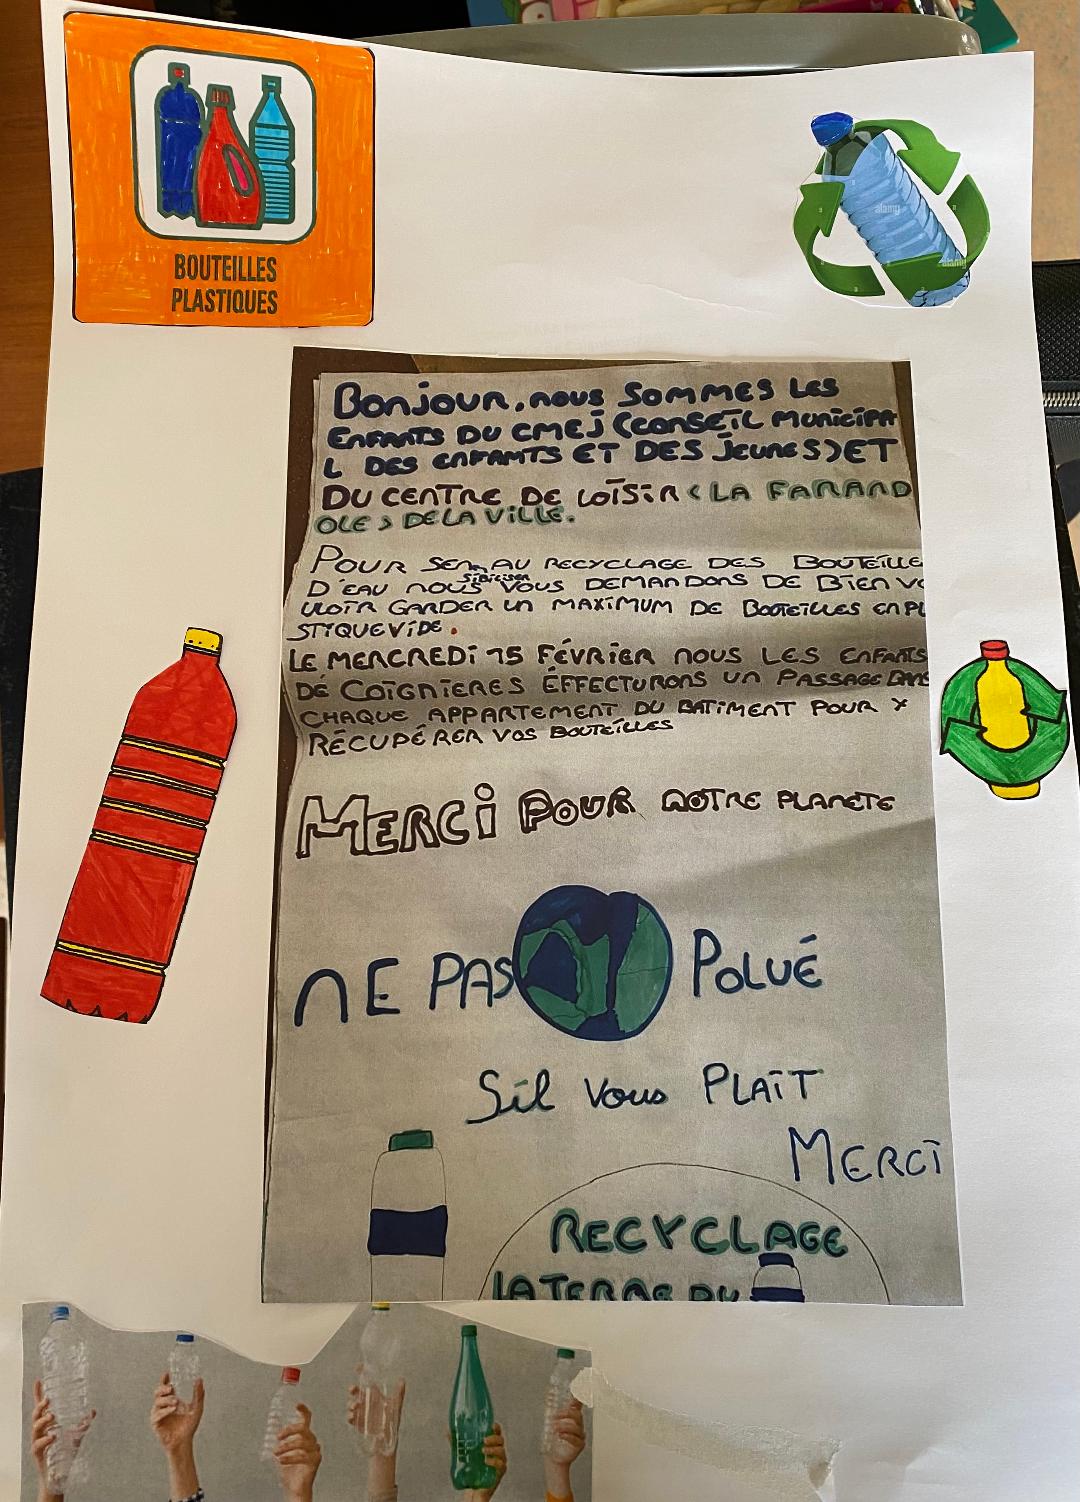 BOUTEILLES
PLASTIQUES
alamy
alamy
a
a
a
Bonjour, nous SOMMES LES
ENFANTS DU CMEJ (CONSEIL MUNICIPA
L DES ENFAMTS ET DES JEUNES) ET
DU CENTRE DE LOÏSIR < LA FARAND
OLE > DE LA VILLE.
POUR SEN AU RECYCLAGE DES BOUTEILLE
SIBILISER
D'EAU NOUS VOUS DEMANDONS DE BIEN VO
ULOIR GARDER UN MAXIMUM DE BOUTEILLES EN PL
STIQUE VIDE.
LE MERCREDI 15 FÉVRIER NOUS LES ENFANTS
DE COIGNIERES ÉFFECTURONS UN PASSAGE DANS
CHAQUE APPARTEMENT DU BATIMENT POUR
RÉCUPÉRER VOS BOUTEILLES
MERCI POUR NOTRE PLANETE
NE PAS POLUÉ
Sil vous PLAÎT
MERCI
RECYCLAGE
LA TERRE DU